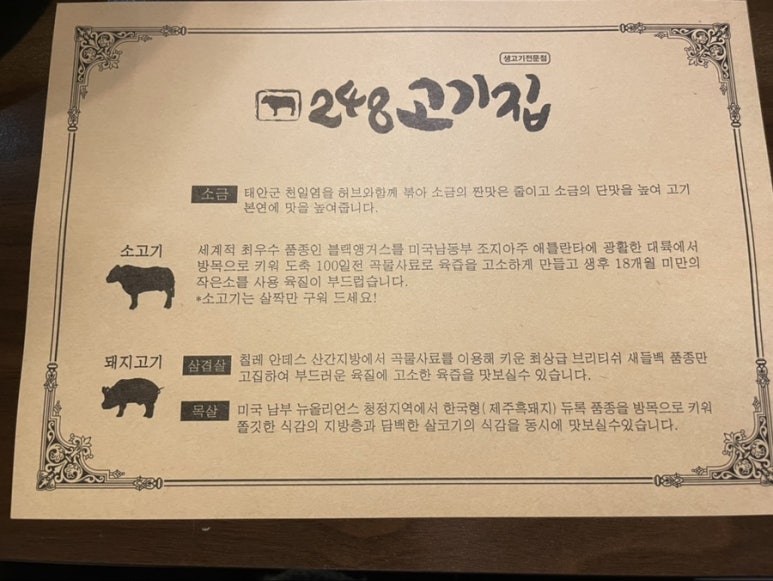 생고기전문점
248고기집
소금 태안군 천일염을 허브와함께 볶아 소금의 짠맛은 줄이고 소금의 단맛을 높여 고기
본연에 맛을 높여줍니다.
소고기 세계적 최우수 품종인 블랙앵거스를 미국남동부 조지아주 애틀란타에 광활한 대륙에서
방목으로 키워 도축 100일전 곡물사료로 육즙을 고소하게 만들고 생후 18개월 미만의
작은소를 사용 육질이 부드럽습니다.
*소고기는 살짝만 구워 드세요!
돼지고기 삼겹살 칠레 안데스 산간지방에서 곡물사료를 이용해 키운 최상급 브리티쉬 새들백 품종만
고집하여 부드러운 육질에 고소한 육즙을 맛보실수 있습니다.
목살 미국 남부 뉴올리언스 청정지역에서 한국형(제주흑돼지) 듀록 품종을 방목으로 키워
쫄깃한 식감의 지방층과 담백한 살코기의 식감을 동시에 맛보실수있습니다.